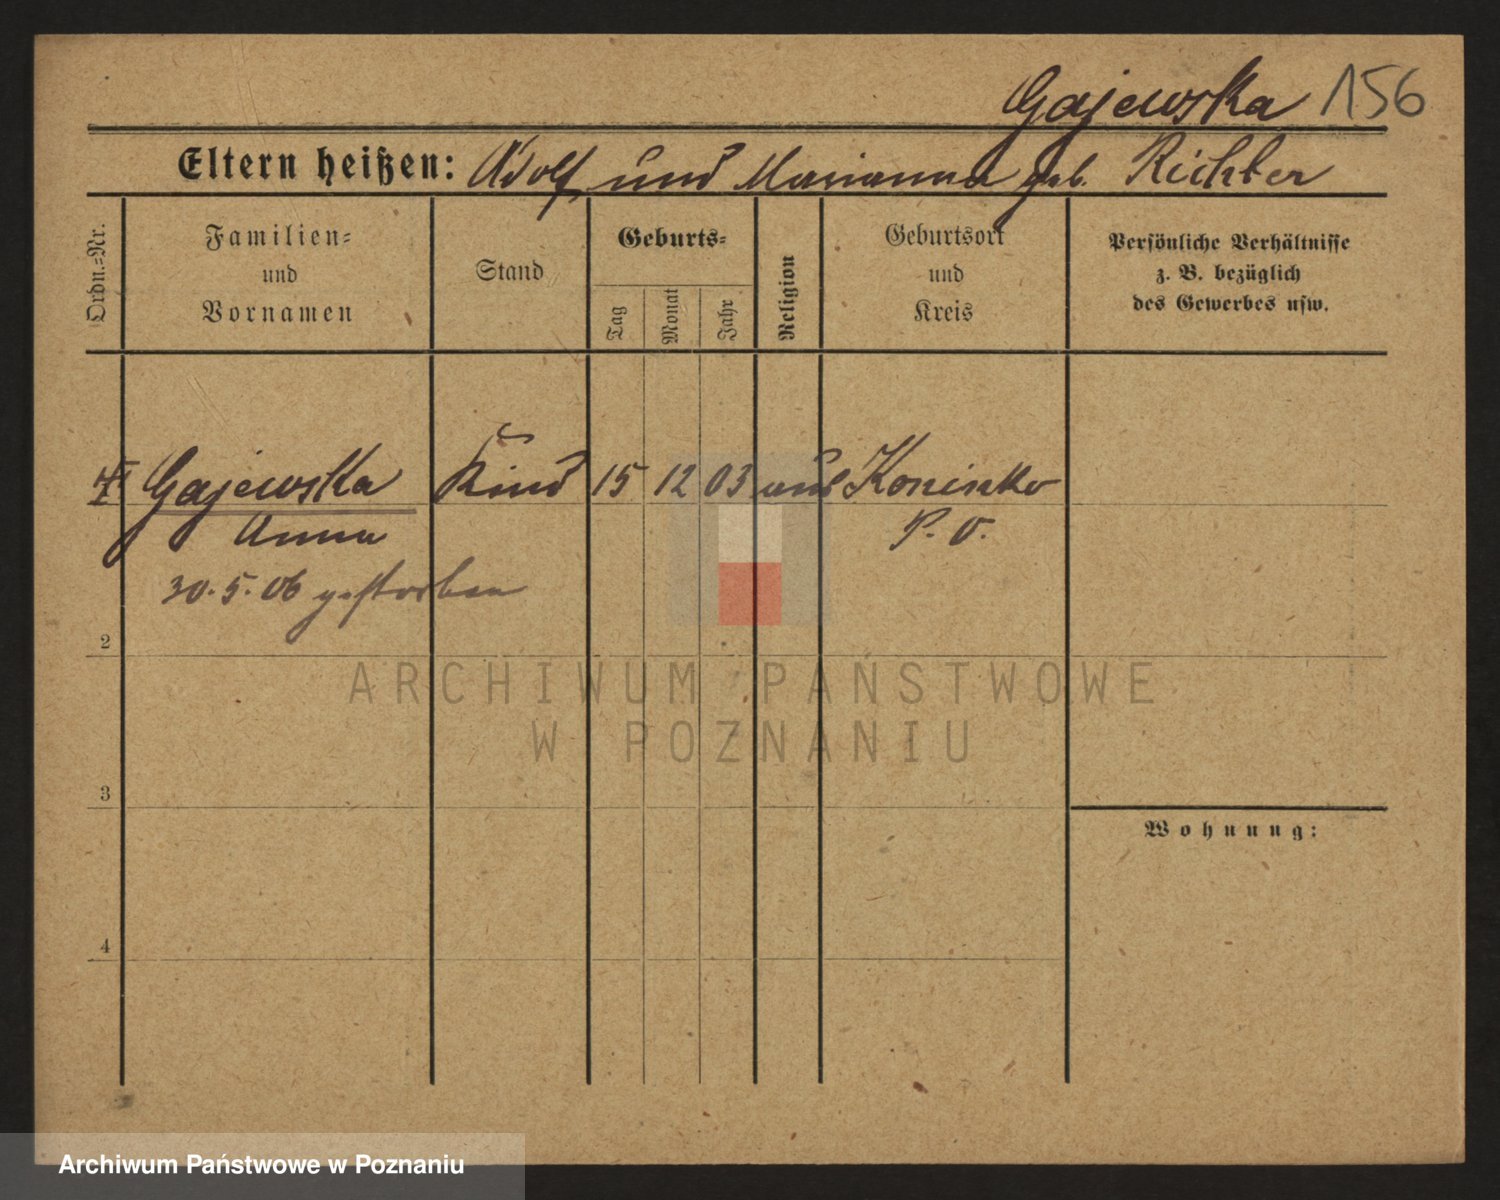 Gajewska 156
Eltern heißen: Adolf und Marianna geb. Richter
Ordn.-Nr.
Familien-
und
Vornamen
Stand
Geburts-
Tag
Monat
Jahr
Religion
Geburtsort
und
Kreis
Persönliche Verhältnisse
z. B. bezüglich
des Gewerbes usw.
Gajewska Kind 15 12 03
Anna
P. O.
30.5.06 gestorben
2
3
4
Wohnung:
ARCHIWUM PAŃSTWOWE
W POZNANIU
Archiwum Państwowe w Poznaniu